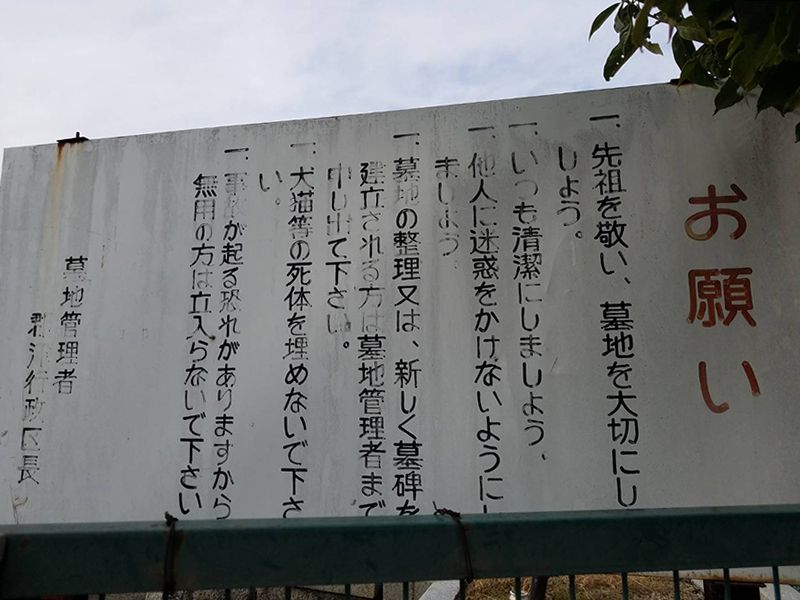 お願い
一、先祖を敬い、墓地を大切にし
しょう。
一、いつも清潔にしましょう、
一、他人に迷惑をかけないようにし
ましょう。
一、墓地の整理又は、新しく墓碑を
建立される方は墓地管理者まで
申し出て下さい。
一、犬猫等の死体を埋めないで下さ
い。
一、事故が起る恐れがありますから
無用の方は立入らないで下さい
墓地管理者
行政区長